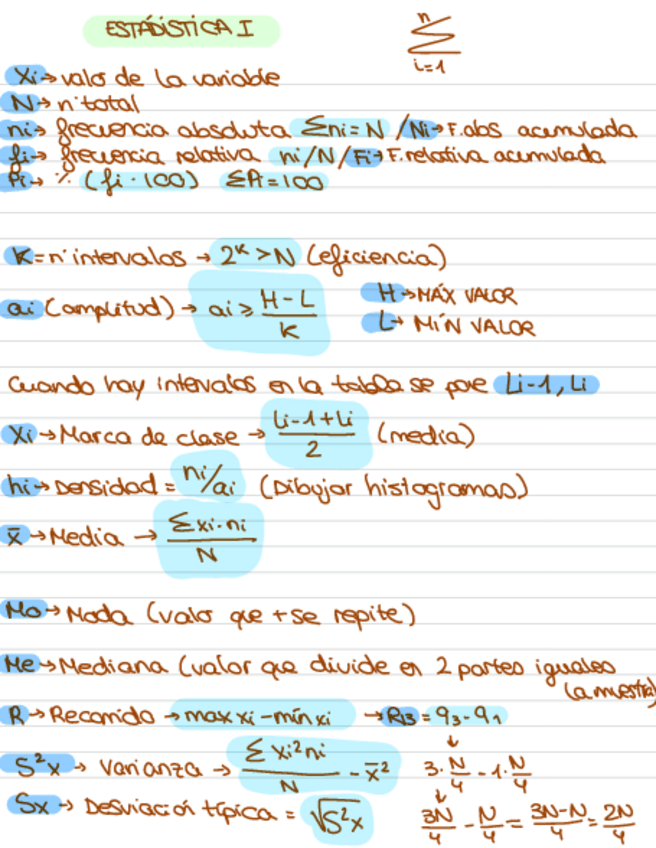 ESTADÍSTICA I
n
Σ
i=1
Xi → valor de la variable
N → nº total
ni → frecuencia absoluta Σni = N / Ni → F.abs acumulada
fi → frecuencia relativa ni/N / Fi → F.relativa acumulada
Pi → % (fi · 100) ΣPi = 100
K = nº intervalos → 2^K > N (eficiencia)
ai (amplitud) → ai ≥ (H - L)/K
H → MÁX VALOR
L → MÍN VALOR
Cuando hay intervalos en la tabla se pone Li-1, Li
Xi → Marca de clase → (Li-1 + Li)/2 (media)
hi → Densidad = ni/ai (Dibujar histogramas)
x̄ → Media → Σxi·ni/N
Mo → Moda (valor que + se repite)
Me → Mediana (valor que divide en 2 partes iguales la muestra)
R → Recorrido → max xi - mín xi → R13 = q3 - q1
S²x → Varianza → Σxi²ni/N - x̄²
↓
3·N/4 - 1·N/4
Sx → Desviación típica = √S²x
↓
3N/4 - N/4 = (3N-N)/4 = 2N/4